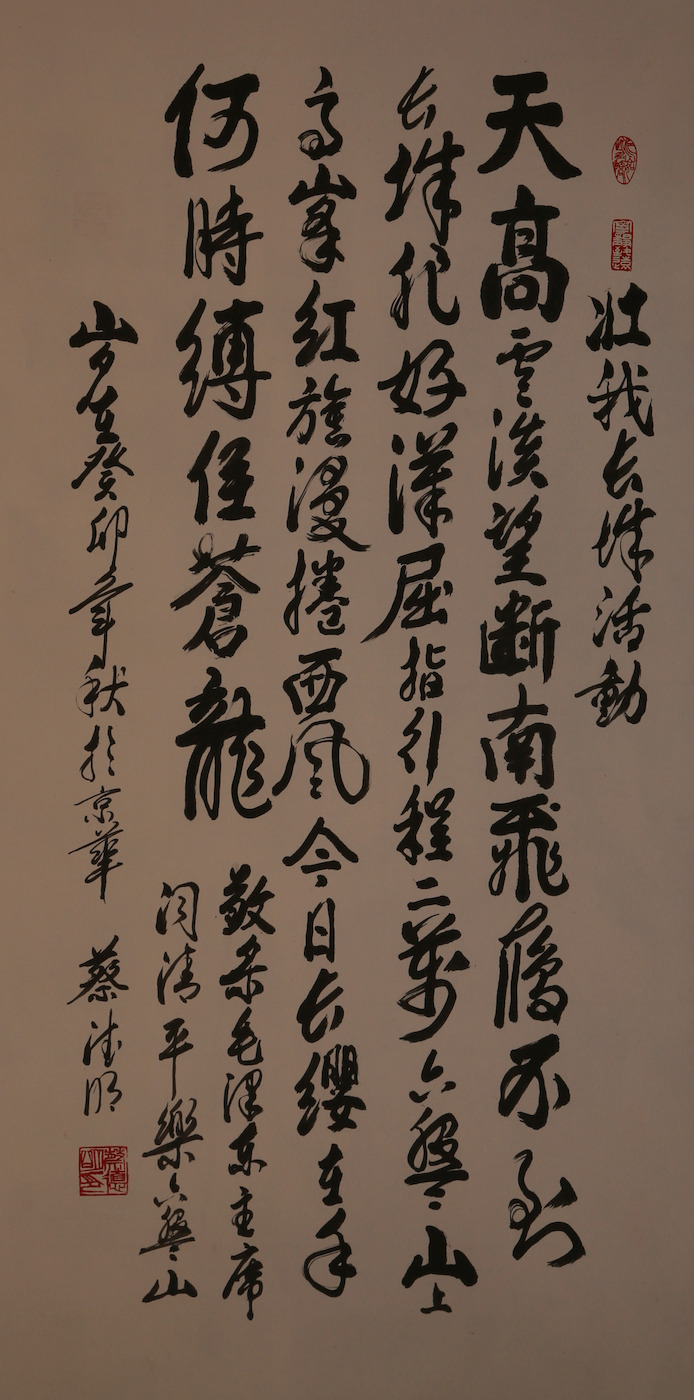 壮我长城活動
天高雲淡望断南飛鴈不到
长城非好漢屈指行程二萬六盤山上
高峯紅旗漫捲西風今日长纓在手
何時縛住蒼龍
敬录毛泽东主席
词清平樂六盤山
岁在癸卯年秋於京華 蔡德明
蔡德明印